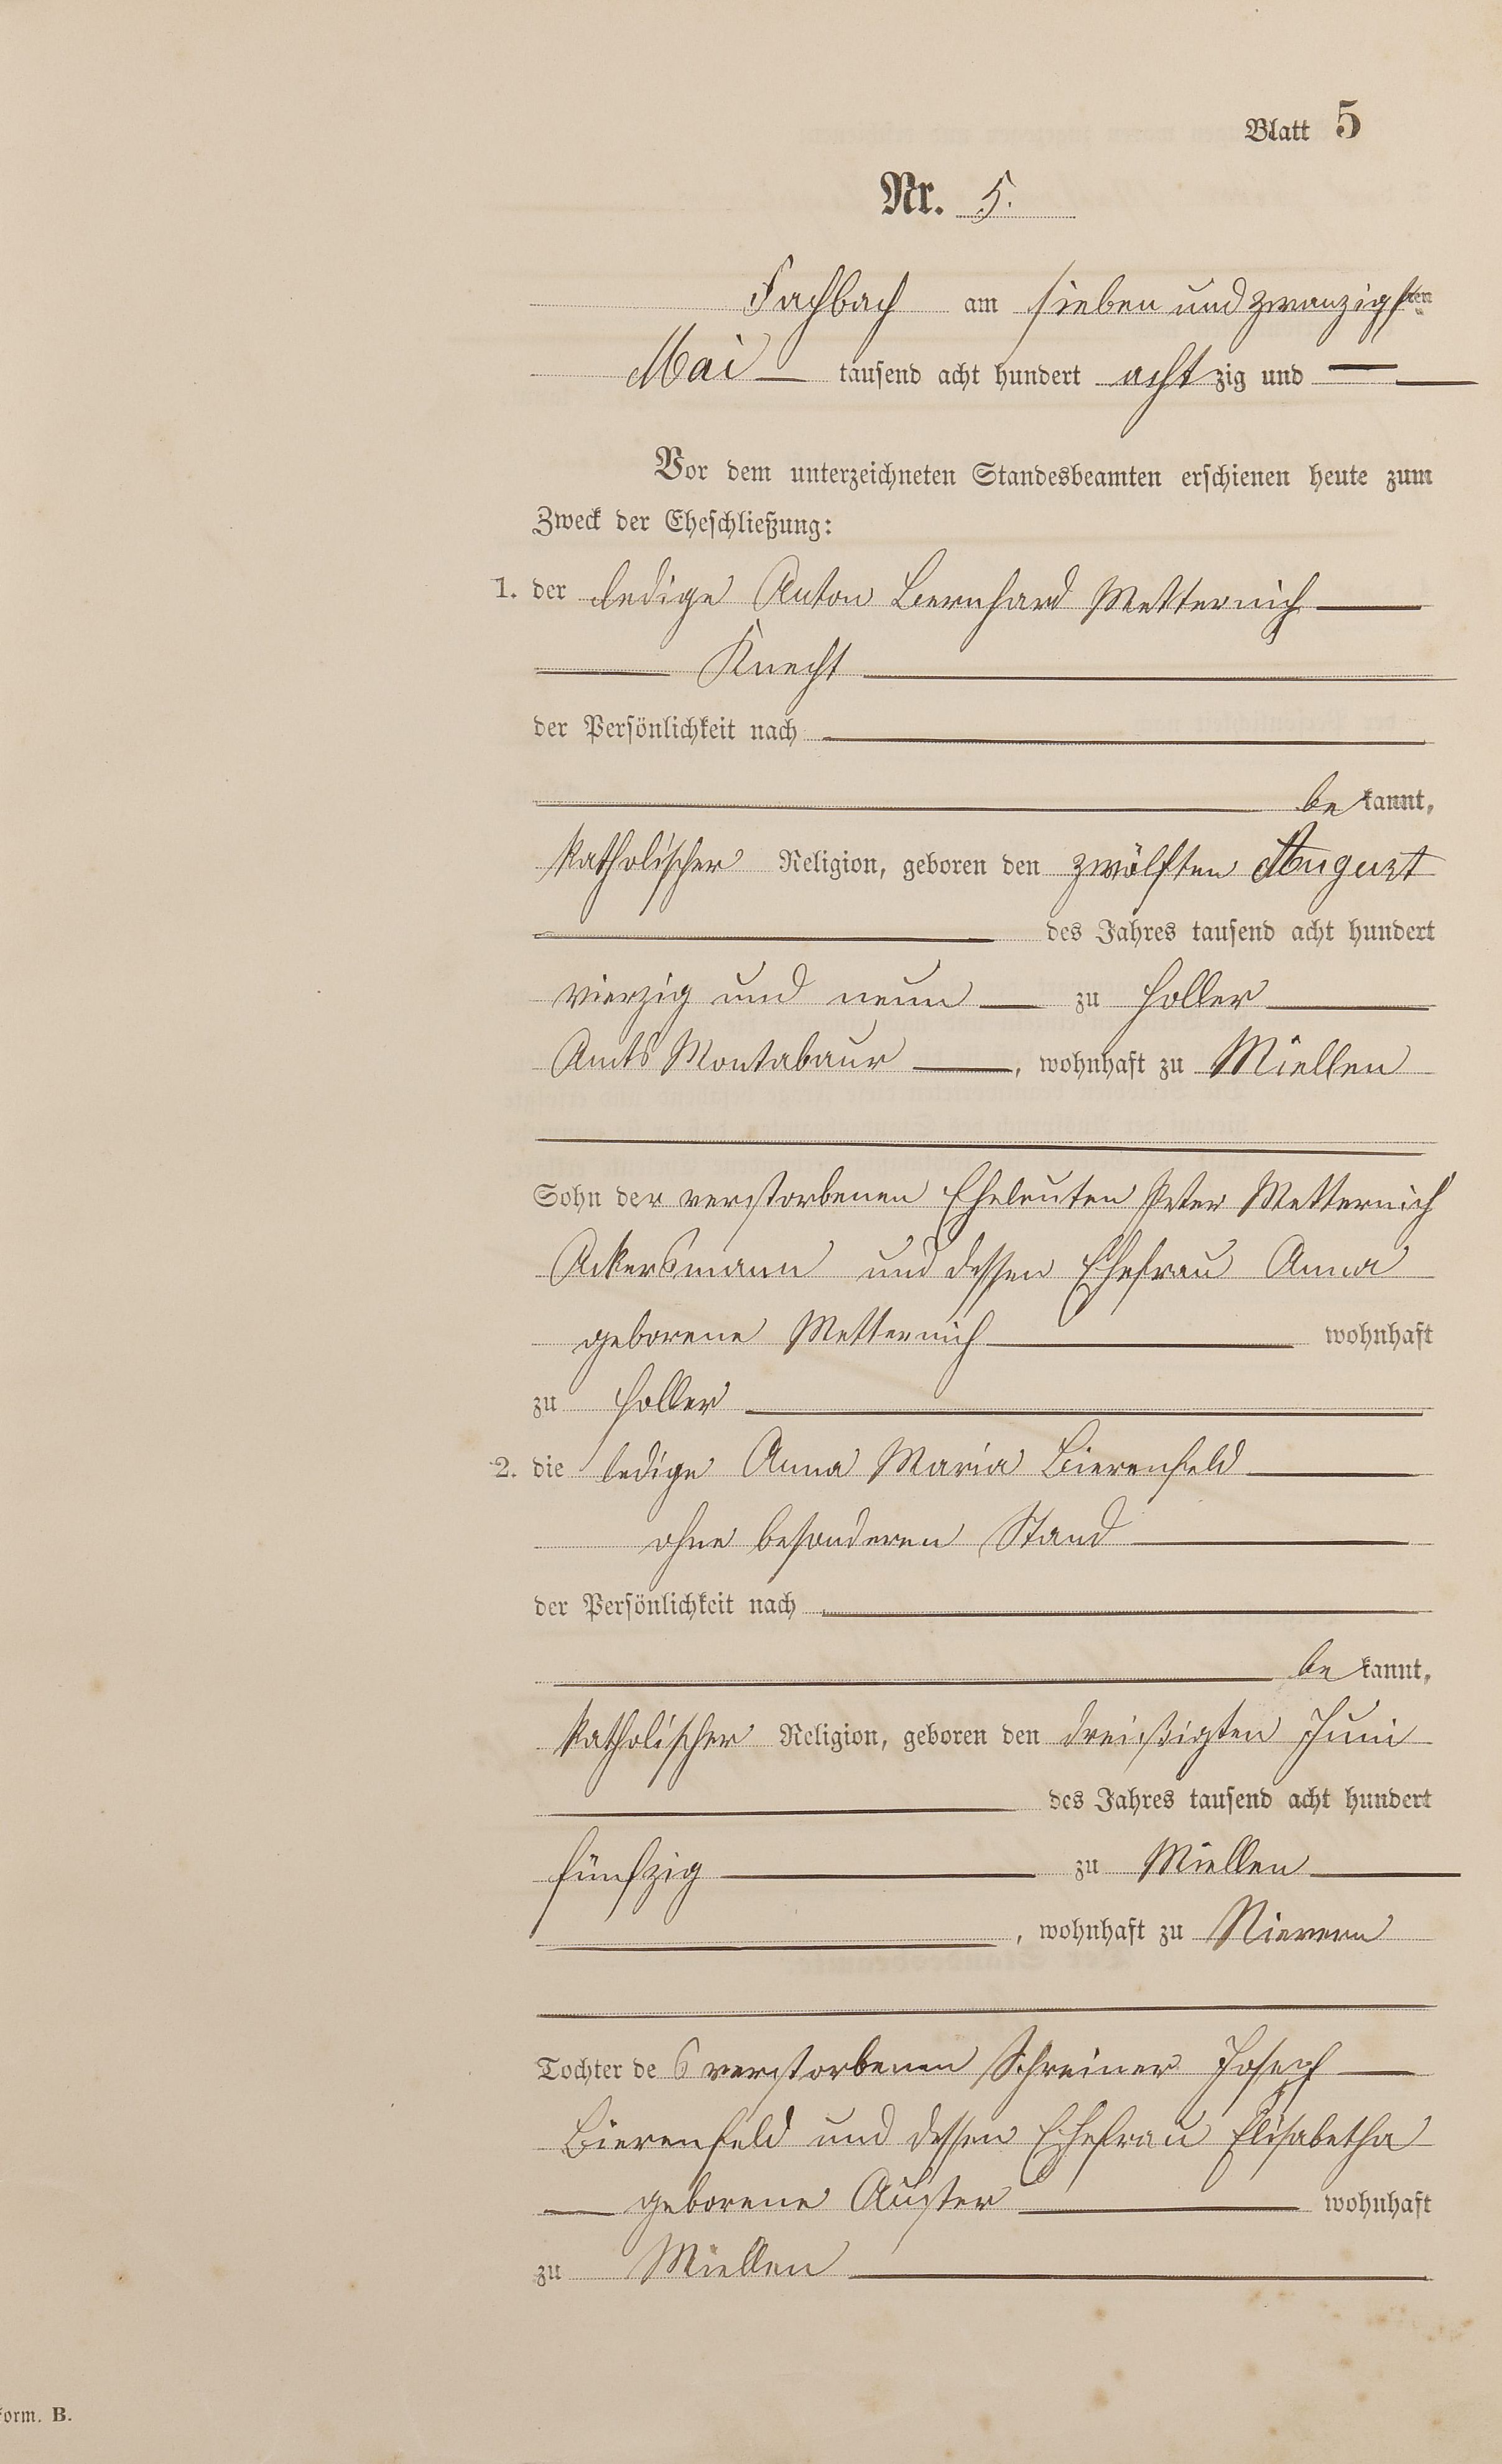 Blatt 5
Nr. 5.
Fachbach am sieben und zwanzigsten
Mai tausend acht hundert achtzig und
Vor dem unterzeichneten Standesbeamten erschienen heute zum
Zweck der Eheschließung:
1. der ledige Anton Bernhard Metternich
Knecht
der Persönlichkeit nach
bekannt,
katholischer Religion, geboren den zwölften August
des Jahres tausend acht hundert
vierzig und neun zu Holler
Amts Montabaur, wohnhaft zu Miellen
Sohn der verstorbenen Eheleuten Peter Metternich
Ackersmann und dessen Ehefrau Anna
geborene Metternich wohnhaft
zu Holler
2. die ledige Anna Maria Bierenfeld
ohne besonderen Stand
der Persönlichkeit nach
bekannt,
katholischer Religion, geboren den dreißigten Juni
des Jahres tausend acht hundert
fünfzig zu Miellen
, wohnhaft zu Nievern
Tochter des verstorbenen Schreiner Joseph
Bierenfeld und dessen Ehefrau Elisabetha
geborene Auster wohnhaft
zu Miellen
Form. B.